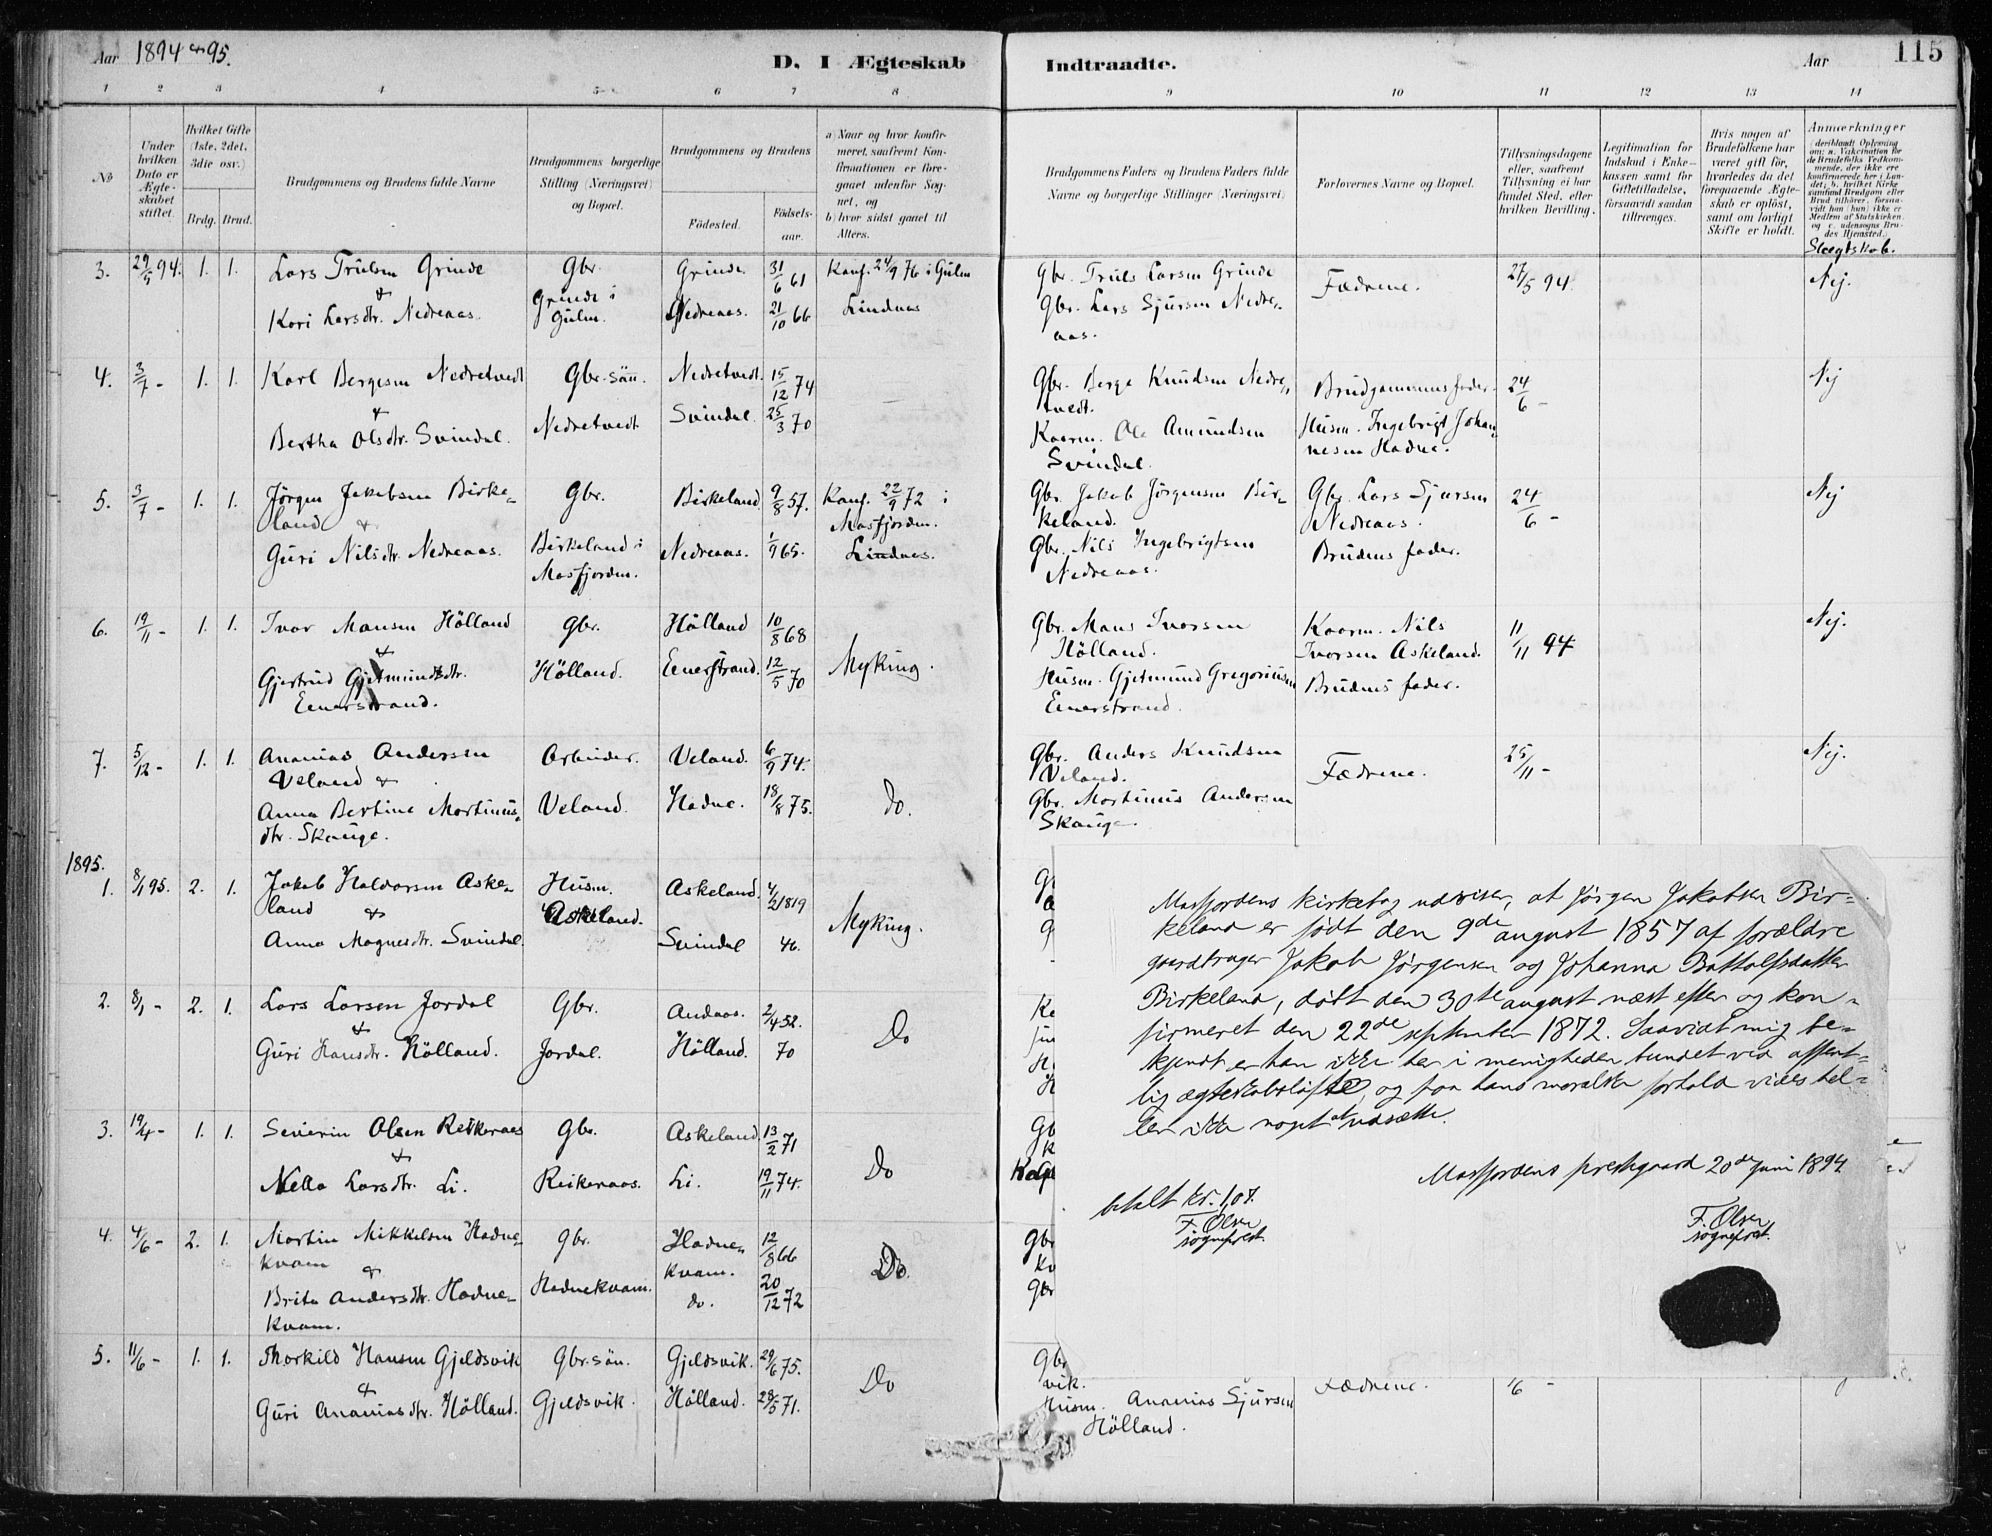 Aar 1894 & 95.
D. I Ægteskab
Indtraadte.
Aar
115
1 2 3 4 5 6 7 8
9 10 11 12 13 14
No
Under hvilken Dato er Ægteskabet stiftet.
Hvilket Gifte (1ste, 2det, 3die osv.)
Brdg. Brud.
Brudgommens og Brudens fulde Navne
Brudgommens borgerlige Stilling (Næringsvei) og Bopæl.
Brudgommens og Brudens
Fødested.
Fødsels-aar.
a) Naar og hvor konfirmeret, saafremt Konfirmationen er foregaaet udenfor Sognet, og
b) hvor sidst gaaet til Alters.
Brudgommens Faders og Brudens Faders fulde Navne og borgerlige Stillinger (Næringsvei)
Forlovernes Navne og Bopæl.
Tillysningsdagene eller, saafremt Tillysning ei har fundet Sted, efter hvilken Bevilling.
Legitimation for Indskud i Enkekassen samt for Giftetilladelse, forsaavidt saadan tiltrænges.
Hvis nogen af Brudefolkene har været gift før, hvorledes da det foregaaende Ægteskab er opløst, samt om lovligt Skifte er holdt.
Anmerkninger (deriblandt Oplysning om: a. Vakcination for de Brudefolks Vedkommende, der ikke ere konfirmerede her i Landet; b. hvilket Kirkesamfund Brudgom eller Brud tilhører, forsaavidt han (hun) ikke er Medlem af Statskirken, og c. udensogns Brudes Hjemsted.)
Slægtskab.
3. 29/5 94. 1. 1. Lars Trulsen Grinde & Kari Larsdtr. Nedreaas.
Gbr. Grinde i Gulen.
Grinde. 31/6 61
Nedreaas. 21/10 66
Konf. 24/9 76 i Gulen
Lindaas
Gbr. Truls Larsen Grinde
Gbr. Lars Sjursen Nedreaas.
Fædrene.
27/5 94.
Nej.
4. 3/7 - 1. 1. Karl Bergesen Nedretvedt & Bertha Olsdtr. Svindal.
Gbr. sön. Nedretvedt
Nedretvedt. 15/12 74
Svindal 25/3 70
Gbr. Berge Knudsen Nedretvedt.
Kaarm. Ole Amundsen Svindal.
Brudgommens fader.
Husm. Ingebrigt Johannesen Hadne.
24/6 -
Nej
5. 3/7 - 1. 1. Jörgen Jakobsen Birkeland & Guri Nilsdtr. Nedreaas.
Gbr. Birkeland i Masfjorden.
Birkeland 9/8 57.
Nedreaas. 1/9 65.
Konf. 22/9 72 i Masfjorden.
Lindaas.
Gbr. Jakob Jörgensen Birkeland.
Gbr. Nils Ingebrigtsen Nedreaas.
Gbr. Lars Sjursen Nedreaas.
Brudens fader.
24/6 -
Nej
6. 19/11 - 1. 1. Ivar Mansen Hölland & Gjertrud Gjetmundsdtr. Eenerstrand.
Gbr. Hölland.
Hölland 10/8 68
Eenerstrand. 12/5 70
Myking.
Gbr. Mans Ivarsen Hölland.
Husm. Gjetmund Gregoriusen Eenerstrand.
Kaarm. Nils Ivarsen Askeland.
Brudens fader.
11/11 94
Nej.
7. 5/12 - 1. 1. Ananias Andersen Veland & Anna Bertine Martinusdtr. Skauge.
Arbeider. Veland.
Veland. 6/9 74.
Hadne. 18/8 75.
do.
Gbr. Anders Knudsen Veland.
Gbr. Martinus Andersen Skauge.
Fædrene.
25/11 -
Nej.
1895.
1. 8/1 95. 2. 1. Jakob Haldorsen Askeland & Anna Magnesdtr. Svindal.
Husm. Askeland.
Askeland. 4/2 1819
Svindal 46.
Myking.
2. 8/1 - 2. 1. Lars Larsen Jordal & Guri Hansdtr. Hölland.
Gbr. Jordal.
Andaas. 2/4 52.
Hölland. 70
Do
3. 19/4 - 1. 1. Severin Olsen Reikeraas & Nella Larsdtr. Li.
Gbr. Reikeraas.
Askeland 13/2 71
Li. 19/11 74.
Do
4. 4/6 - 2. 1. Martin Mikkelsen Hadnekvam & Brita Andersdtr. Hadnekvam.
Gbr. Hadnekvam.
Hadnekvam. 12/8 66
do. 20/12 72
Do.
5. 11/6 - 1. 1. Thorkild Hansen Gjeldsvik & Guri Ananiasdtr. Hölland.
Gbr. sön. Gjeldsvik.
Gjeldsvik. 29/6 75.
Hölland. 28/5 71.
Do
Gbr
vik.
Husm. Ananias Sjursen
Hölland.
Fædrene.
Masfjordens kirkebog udviser, at Jørgen Jakobsen Bir-
keland er født den 9de august 1857 af forældre
gaardbruger Jakob Jørgensen og Johanna Bottolfsdatter
Birkeland, døbt den 30te august næst efter og kon-
firmeret den 22de september 1872. Saavidt mig be-
kjendt er han ikke her i menigheden bundet ved offent-
lig ægteskabsløfte, og paa hans moralske forhold vides hel-
ler ikke noget at udsætte.
Masfjordens prestegaard 20de juni 1894
betalt kr. 1,07.
F. Olsen
sogneprest.
F. Olsen
sogneprest.